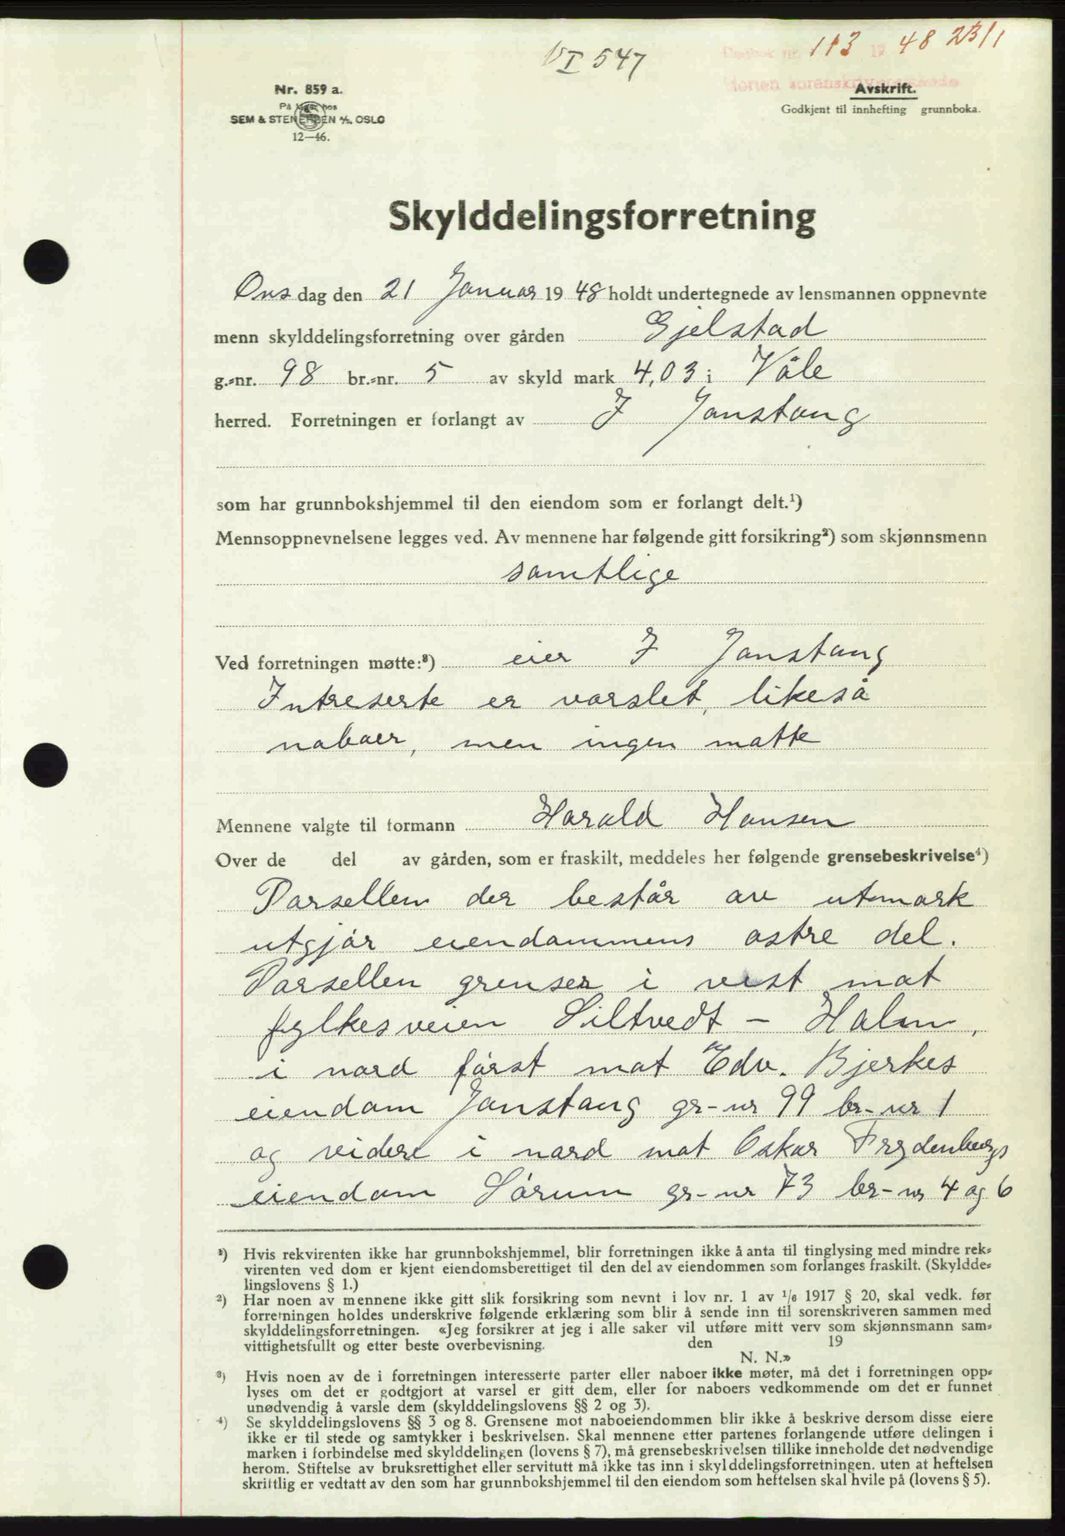 VI 547
Dagbok nr. 113 19 48 23/1
Horten sorenskriverembede
Nr. 859 a.
På lager hos
SEM & STENERSEN A/S, OSLO
12—46.
Avskrift.
Godkjent til innhefting grunnboka.
Skylddelingsforretning
Onsdag den 21 Januar 19 48 holdt undertegnede av lensmannen oppnevnte
menn skylddelingsforretning over gården Gjelstad
g.-nr. 98 br.-nr. 5 av skyld mark 4,03 i Våle
herred. Forretningen er forlangt av J Janstang
som har grunnbokshjemmel til den eiendom som er forlangt delt.¹)
Mennsoppnevnelsene legges ved. Av mennene har følgende gitt forsikring²) som skjønnsmenn
samtlige
Ved forretningen møtte:³) eier J Janstang
Intreserte er varslet, likeså
naboer, men ingen møtte
Mennene valgte til formann Harald Hansen
Over de del av gården, som er fraskilt, meddeles her følgende grensebeskrivelse⁴)
Parsellen der består av utmark
utgjør eiendommens østre del.
Parsellen grenser i vest mot
fylkesveien Siltvedt – Holm,
i nord først mot Edv. Bjerkes
eiendom Janstang gr-nr 99 br-nr 1
og videre i nord mot Oskar Frydenbergs
eiendom Sørum gr-nr 73 br-nr 4 og 6
¹) Hvis rekvirenten ikke har grunnbokshjemmel, blir forretningen ikke å anta til tinglysing med mindre rek-
virenten ved dom er kjent eiendomsberettiget til den del av eiendommen som forlanges fraskilt. (Skyldde-
lingslovens § 1.)
²) Har noen av mennene ikke gitt slik forsikring som nevnt i lov nr. 1 av 1/6 1917 § 20, skal vedk. før
forretningen holdes underskrive følgende erklæring som blir å sende inn til sorenskriveren sammen med
skylddelingsforretningen. «Jeg forsikrer at jeg i alle saker vil utføre mitt verv som skjønnsmann sam-
vittighetsfullt og etter beste overbevisning. den 19
N. N.»
³) Hvis noen av de i forretningen interesserte parter eller naboer ikke møter, må det i forretningen opp-
lyses om det er godtgjort at varsel er gitt dem, eller for naboers vedkommende om det er funnet
unødvendig å varsle dem (skylddelingslovens §§ 2 og 3).
⁴) Se skylddelingslovens §§ 3 og 8. Grensene mot naboeiendommen blir ikke å beskrive dersom disse eiere
ikke er til stede og samtykker i beskrivelsen. Skal mennene etter partenes forlangende utføre delingen i
marken i forbindelse med skylddelingen (lovens § 7), må grensebeskrivelsen tillike inneholde det nødvendige
herom. Stiftelse av bruksrettighet eller servitutt må ikke tas inn i skylddelingsforretningen, uten at heftelsen
skriftlig er vedtatt av den som har grunnbokshjemmel til den eiendom som heftelsen skal hvile på (lovens § 5).